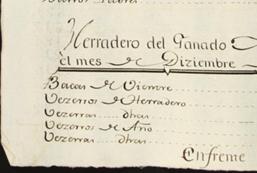 Herradero del Ganado
el mes de Diziembre
Bacas de Vientre
Vezerros de Herradero
Vezerras....dhas
Vezerros de Año
Vezerras....dhas
Enfrente